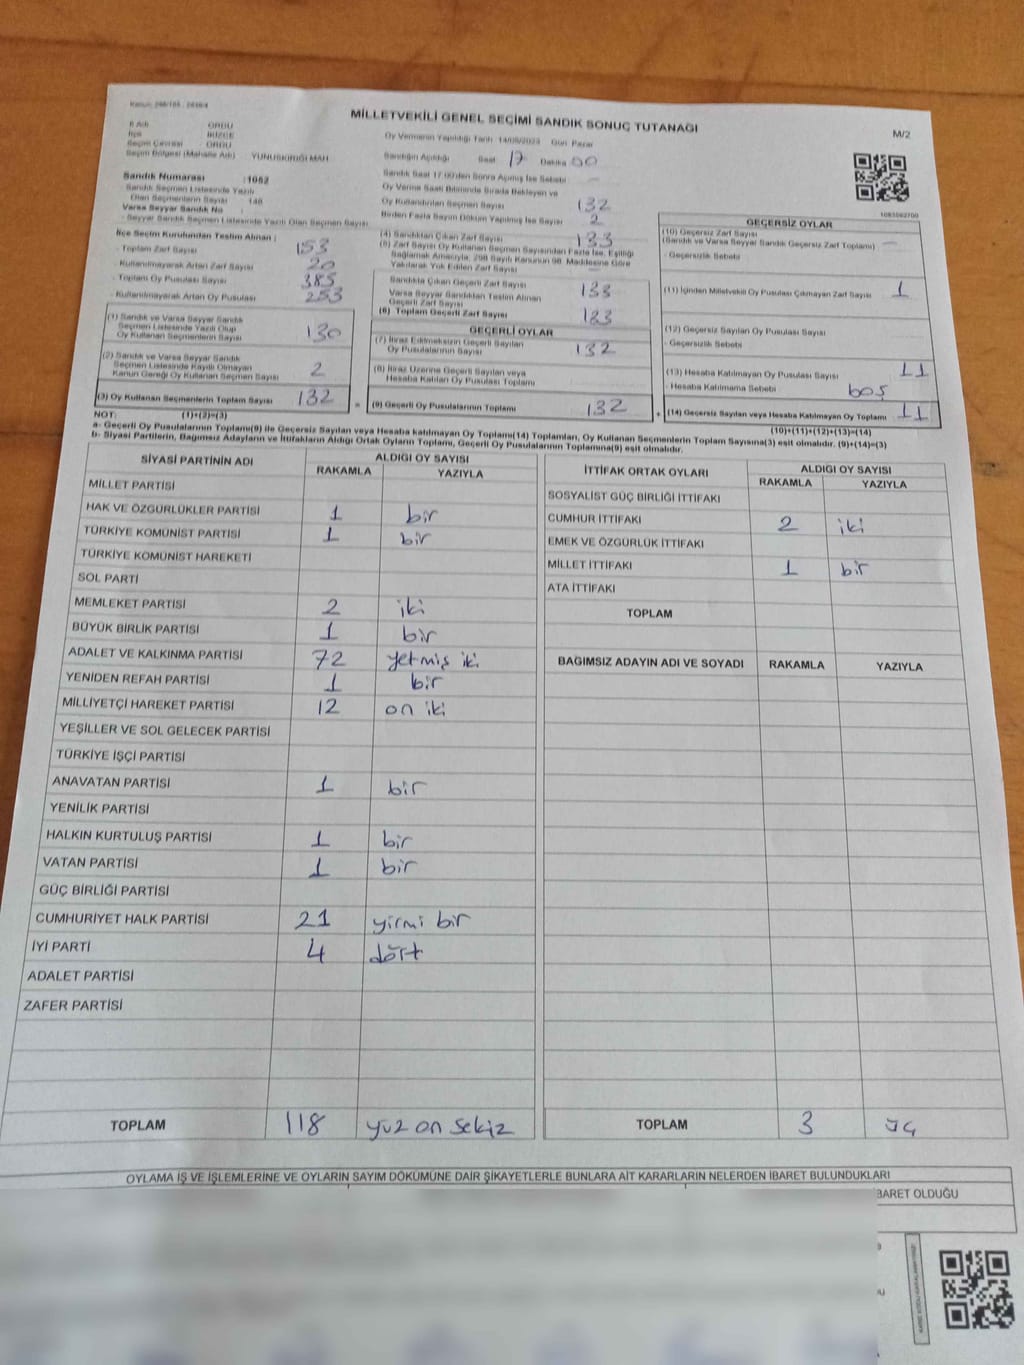 MİLLETVEKİLİ GENEL SEÇİMİ SANDIK SONUÇ TUTANAĞI
M/2
İl Adı ORDU
İlçe İKİZCE
Seçim Çevresi ORDU
Seçim Bölgesi (Mahalle Adı) YUNUSKIRIĞI MAH.
Oy Vermenin Yapıldığı Tarih 14/05/2023 Gün Pazar
Sandığın Açıldığı Saat 17 Dakika 00
Sandık Saat 17:00'den Sonra Açılmış İse Sebebi
Oy Verme Saati Bitiminde Sırada Bekleyen ve
Oy Kullandırılan Seçmen Sayısı 132
Birden Fazla Sayım Döküm Yapılmış İse Sayısı 2
Sandık Numarası :1052
Sandık Seçmen Listesinde Yazılı
Olan Seçmenlerin Sayısı 148
Varsa Seyyar Sandık No :
- Seyyar Sandık Seçmen Listesinde Yazılı Olan Seçmen Sayısı
İlçe Seçim Kurulundan Teslim Alınan :
- Toplam Zarf Sayısı 153
- Kullanılmayarak Artan Zarf Sayısı 20
- Toplam Oy Pusulası Sayısı 385
- Kullanılmayarak Artan Oy Pusulası 253
(1) Sandık ve Varsa Seyyar Sandık
Seçmen Listesinde Yazılı Olup
Oy Kullanan Seçmenlerin Sayısı 130
(2) Sandık ve Varsa Seyyar Sandık
Seçmen Listesinde Kayıtlı Olmayan
Kanun Gereği Oy Kullanan Seçmen Sayısı 2
(3) Oy Kullanan Seçmenlerin Toplam Sayısı 132
(4) Sandıktan Çıkan Zarf Sayısı 133
(5) Zarf Sayısı Oy Kullanan Seçmen Sayısından Fazla İse, Eşitliği
Sağlamak Amacıyla, 298 Sayılı Kanunun 98. Maddesine Göre
Yakılarak Yok Edilen Zarf Sayısı
Sandıkta Çıkan Geçerli Zarf Sayısı 133
Varsa Seyyar Sandıktan Teslim Alınan
Geçerli Zarf Sayısı
(6) Toplam Geçerli Zarf Sayısı 133
GEÇERLİ OYLAR
(7) İtiraz Edilmeksizin Geçerli Sayılan
Oy Pusulalarının Sayısı 132
(8) İtiraz Üzerine Geçerli Sayılan veya
Hesaba Katılan Oy Pusulası Toplamı
= (9) Geçerli Oy Pusulalarının Toplamı 132
1083562700
GEÇERSİZ OYLAR
(10) Geçersiz Zarf Sayısı
(Sandık ve Varsa Seyyar Sandık Geçersiz Zarf Toplamı)
- Geçersizlik Sebebi
(11) İçinden Milletvekili Oy Pusulası Çıkmayan Zarf Sayısı 1
(12) Geçersiz Sayılan Oy Pusulası Sayısı
- Geçersizlik Sebebi
(13) Hesaba Katılmayan Oy Pusulası Sayısı 11
- Hesaba Katılmama Sebebi boş
+ (14) Geçersiz Sayılan veya Hesaba Katılmayan Oy Toplamı 11
NOT: (1)+(2)=(3) (10)+(11)+(12)+(13)=(14)
a- Geçerli Oy Pusulalarının Toplamı(9) ile Geçersiz Sayılan veya Hesaba katılmayan Oy Toplamı(14) Toplamları, Oy Kullanan Seçmenlerin Toplam Sayısına(3) eşit olmalıdır. (9)+(14)=(3)
b- Siyasi Partilerin, Bağımsız Adayların ve İttifakların Aldığı Ortak Oyların Toplamı, Geçerli Oy Pusulalarının Toplamına(9) eşit olmalıdır.
SİYASİ PARTİNİN ADI ALDIĞI OY SAYISI
RAKAMLA YAZIYLA
MİLLET PARTİSİ
HAK VE ÖZGÜRLÜKLER PARTİSİ 1 bir
TÜRKİYE KOMÜNİST PARTİSİ 1 bir
TÜRKİYE KOMÜNİST HAREKETİ
SOL PARTİ
MEMLEKET PARTİSİ 2 iki
BÜYÜK BİRLİK PARTİSİ 1 bir
ADALET VE KALKINMA PARTİSİ 72 yetmiş iki
YENİDEN REFAH PARTİSİ 1 bir
MİLLİYETÇİ HAREKET PARTİSİ 12 on iki
YEŞİLLER VE SOL GELECEK PARTİSİ
TÜRKİYE İŞÇİ PARTİSİ
ANAVATAN PARTİSİ 1 bir
YENİLİK PARTİSİ
HALKIN KURTULUŞ PARTİSİ 1 bir
VATAN PARTİSİ 1 bir
GÜÇ BİRLİĞİ PARTİSİ
CUMHURİYET HALK PARTİSİ 21 yirmi bir
İYİ PARTİ 4 dört
ADALET PARTİSİ
ZAFER PARTİSİ
TOPLAM 118 yuz on sekiz
İTTİFAK ORTAK OYLARI ALDIĞI OY SAYISI
RAKAMLA YAZIYLA
SOSYALİST GÜÇ BİRLİĞİ İTTİFAKI
CUMHUR İTTİFAKI 2 iki
EMEK VE ÖZGÜRLÜK İTTİFAKI
MİLLET İTTİFAKI 1 bir
ATA İTTİFAKI
TOPLAM
BAĞIMSIZ ADAYIN ADI VE SOYADI RAKAMLA YAZIYLA
TOPLAM 3 üç
OYLAMA İŞ VE İŞLEMLERİNE VE OYLARIN SAYIM DÖKÜMÜNE DAİR ŞİKAYETLERLE BUNLARA AİT KARARLARIN NELERDEN İBARET BULUNDUKLARI
İBARET OLDUĞU